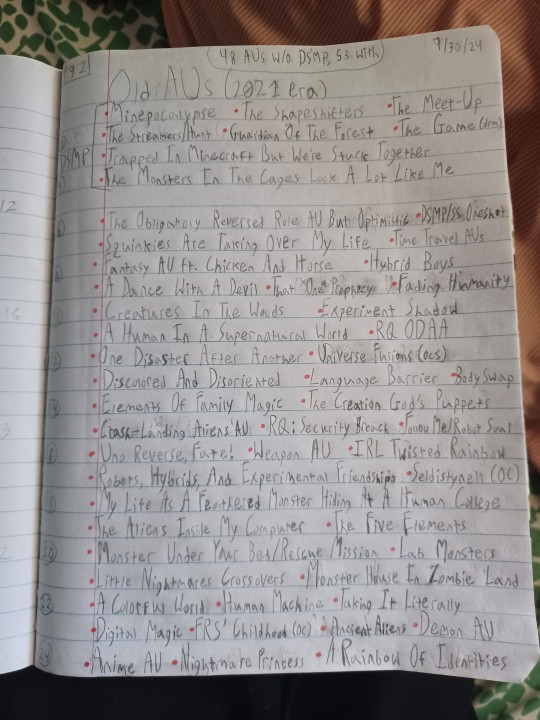 192
48 AUs w/o DSMP, 53 with
9/30/24
Old AUs (2021 era)
•Minepocalypse •The Shapeshifters •The Meet-Up
•The Streamers Hunt •Guardian Of The Forest •The Game (drm)
DSMP
•Trapped In Minecraft But We're Stuck Together
•The Monsters In The Cages Look A Lot Like Me
•The Obligatory Reversed Role AU But Optimistic •DSMP/SS Oneshot
•Squinkies Are Taking Over My Life •Time Travel AUs
•Fantasy AU ft. Chicken And Horse •Hybrid Boys
•A Dance With A Devil •That "One" Prophecy •Fading Humanity
•Creatures In The Woods •Experiment Shadow
•A Human In A Supernatural World •RQ ODAA
•One Disaster After Another •Universe Fusions (ocs)
•Discolored And Disoriented •Language Barrier •Body Swap
•Elements Of Family Magic •The Creation God's Puppets
•Crash-Landing Aliens AU •RQ: Security Breach •Follow Me/Robot Soul
•Uno Reverse, Fate! •Weapon AU •IRL Twisted Rainbow
•Robots, Hybrids, And Experimental Friendships •Seldistyneli (OC)
•My Life As A Feathered Monster Hiding At A Human College
•The Aliens Inside My Computer •The Five Elements
•Monster Under Your Bed/Rescue Mission •Lab Monsters
•Little Nightmares Crossovers •Monster House In Zombie Land
•A Colorful World •Human Machine •Taking It Literally
•Digital Magic •FRS' Childhood (oc) •Ancient Aliens •Demon AU
•Anime AU •Nightmare Princess •A Rainbow Of Identities